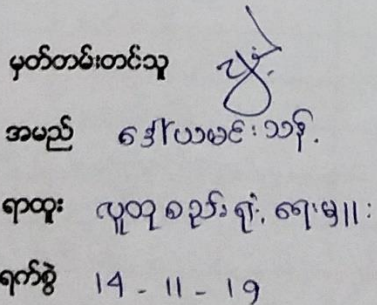 မှတ်တမ်းတင်သူ
အမည် ဒေါ်ယမင်းသန့်
ရာထူး လူထုစည်းရုံးရေးမှူး
ရက်စွဲ 14-11-19